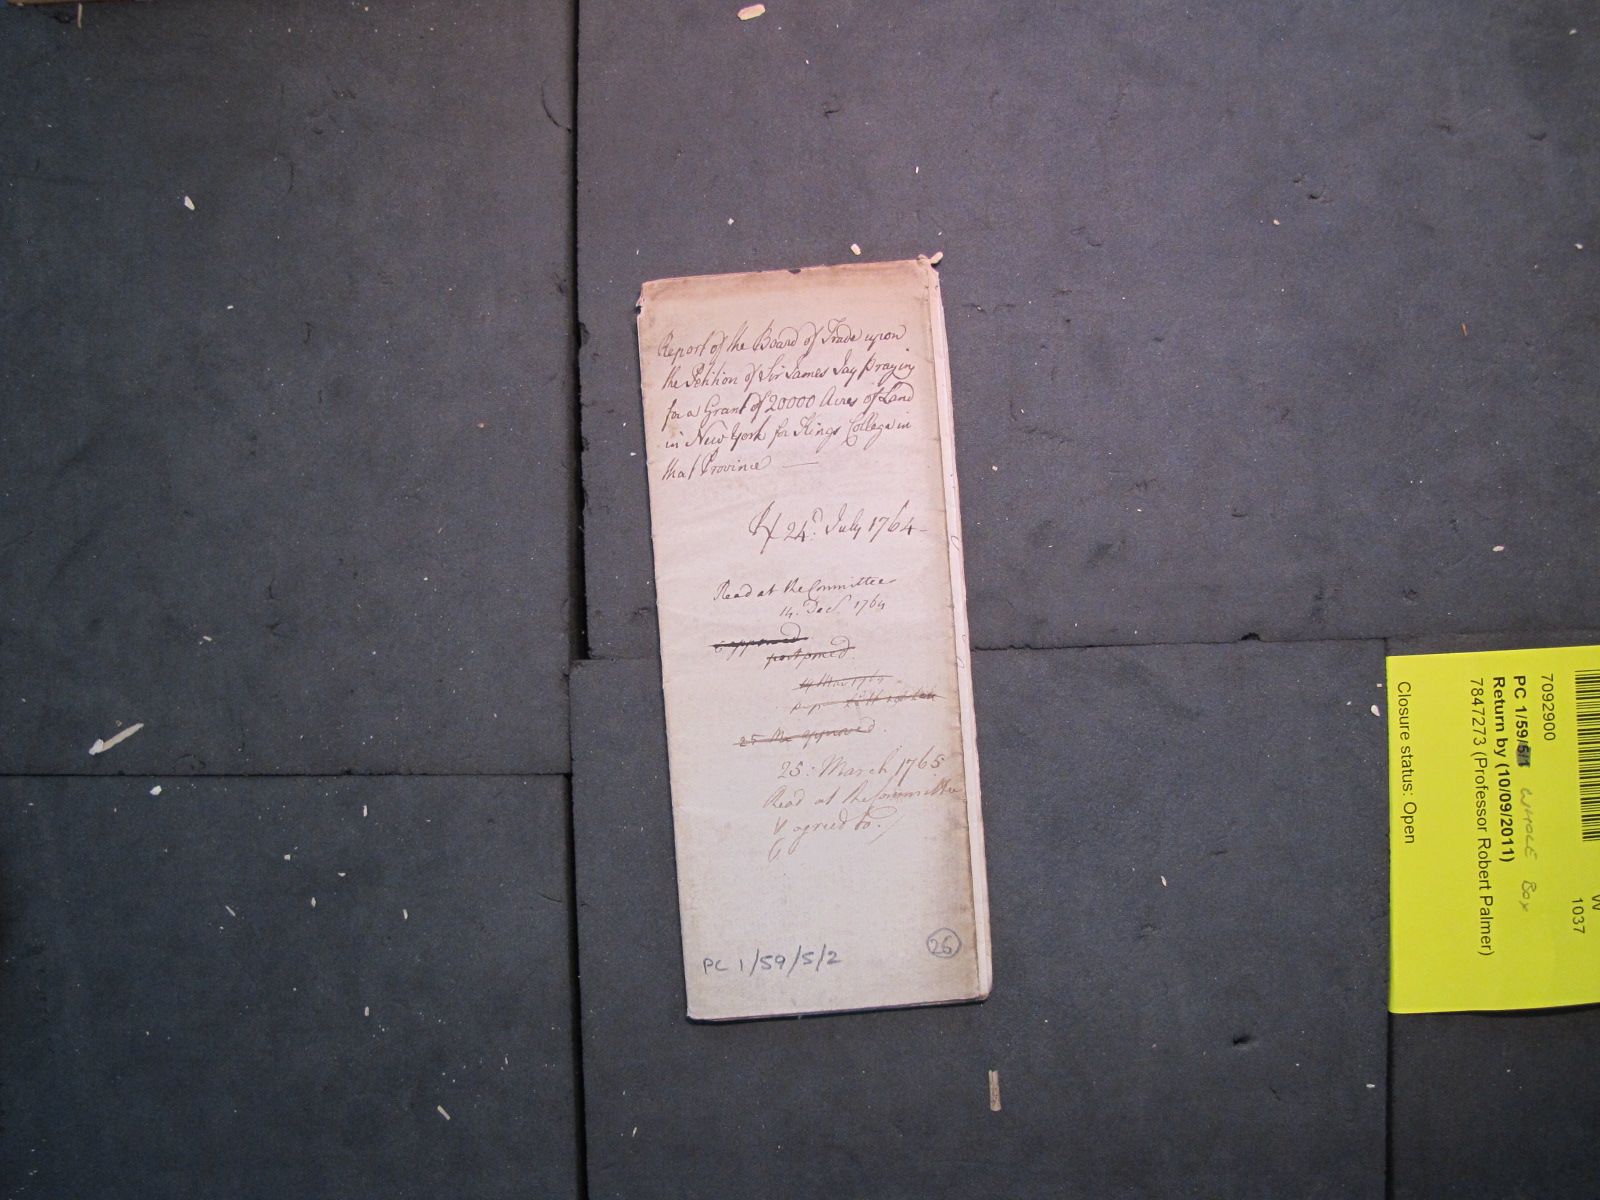 Report of the Board of Trade upon
the Petition of Sir James Jay praying
for a Grant of 20000 Acres of Land
in New York for Kings College in
that Province —
24.d July 1764 -
Read at the Committee
14: Decr 1764
postponed
25: March 1765
Read at the Committee
& agreed to.
PC 1/59/5/2
26
W
1037
7092900
PC 1/59/5/1 WHOLE BOX
Return by (10/09/2011)
7847273 (Professor Robert Palmer)
Closure status: Open